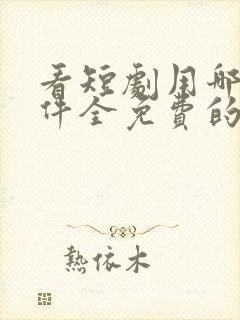 看短劇用哪
件全免費的
熱依木